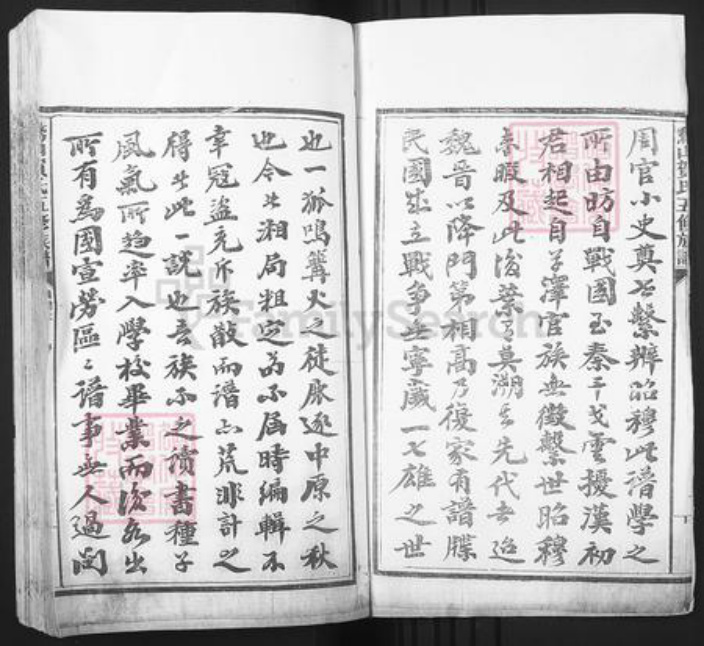 周官小史奠世繫辨昭穆此譜學之
所由昉自戰國至秦干戈雲擾漢初
君相起自草澤官族無徵繫世昭穆
未暇及此後葉莫溯其先代去迨
魏晉以降門第相高乃復家有譜牒
民國成立戰爭無寧歲一七雄之世
也一狐鳴篝火之徒脉逐中原之秋
也今以湘局粗定苟不届時編輯不
幸冠盜充斥族散而譜亦荒非計之
得者此一說也吾族不之讀書種子
風氣所趨率入學校畢業而後多出
所有為國宣勞區區譜事無人過問
FamilySearch